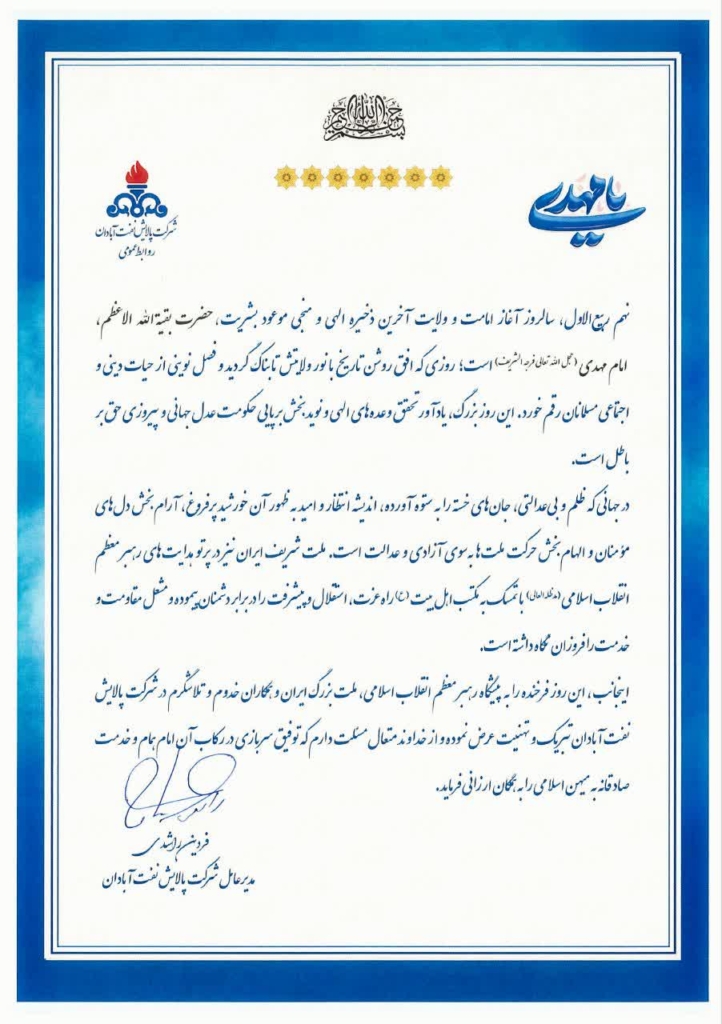 بسم الله الرحمن الرحیم
یا مهدی
شرکت پالایش نفت آبادان
روابط عمومی
نهم ربیع‌الاول، سالروز آغاز امامت و ولایت آخرین ذخیره الهی و منجی موعود بشریت، حضرت بقیة‌الله الاعظم،
امام مهدی (عجل الله تعالی فرجه الشریف) است؛ روزی که افق روشن تاریخ با نور ولایتش تابناک گردید و فصل نوینی از حیات دینی و
اجتماعی مسلمانان رقم خورد. این روز بزرگ، یادآور تحقق وعده‌های الهی و نوید بخش برپایی حکومت عدل جهانی و پیروزی حق بر
باطل است.
در جهانی که ظلم و بی‌عدالتی، جان‌های خسته را به ستوه آورده، اندیشه انتظار و امید به ظهور آن خورشید پرفروغ، آرام بخش دل‌های
مؤمنان و الهام بخش حرکت ملت‌ها به سوی آزادی و عدالت است. ملت شریف ایران نیز در پرتو هدایت‌های رهبر معظم
انقلاب اسلامی (مدظله العالی) با تمسک به مکتب اهل بیت (ع) راه عزت، استقلال و پیشرفت را در برابر دشمنان پیموده و مشعل مقاومت و
خدمت را فروزان نگاه داشته است.
اینجانب، این روز فرخنده را به پیشگاه رهبر معظم انقلاب اسلامی، ملت بزرگ ایران و همکاران خدوم و تلاشگرم در شرکت پالایش
نفت آبادان تبریک و تهنیت عرض نموده و از خداوند متعال مسئلت دارم که توفیق سربازی در رکاب آن امام همام و خدمت
صادقانه به میهن اسلامی را به همگان ارزانی فرماید.
فردین راشدی
مدیرعامل شرکت پالایش نفت آبادان